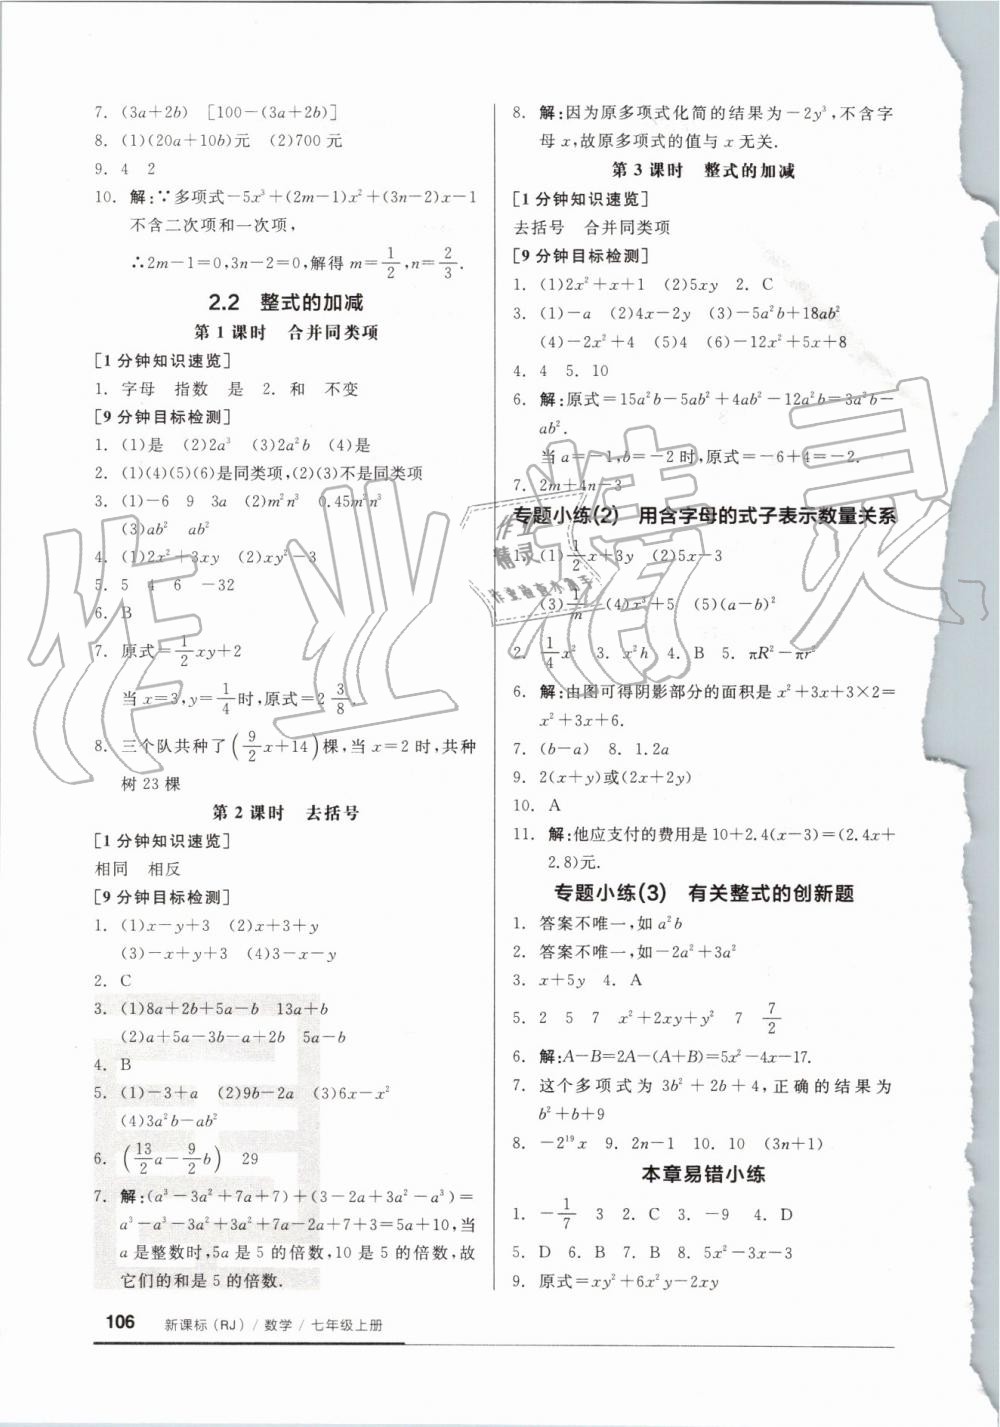 7. (3a+2b) [100-(3a+2b)]
8. (1)(20a+10b)元 (2)700元
9. 4 2
10. 解:∵多项式-5x³+(2m-1)x²+(3n-2)x-1
不含二次项和一次项,
∴2m-1=0,3n-2=0,解得 m=1/2,n=2/3.
2.2 整式的加减
第1课时 合并同类项
[1分钟知识速览]
1. 字母 指数 是 2. 和 不变
[9分钟目标检测]
1. (1)是 (2)2a³ (3)2a²b (4)是
2. (1)(4)(5)(6)是同类项,(2)(3)不是同类项
3. (1)-6 9 3a (2)m²n³ 0.45m²n³
(3)ab² ab²
4. (1)2x²+3xy (2)xy²-3
5. 5 4 6 -32
6. B
7. 原式=1/2xy+2
当 x=3,y=1/4时,原式=2 3/8.
8. 三个队共种了(9/2x+14)棵,当 x=2 时,共种
树 23 棵
第2课时 去括号
[1分钟知识速览]
相同 相反
[9分钟目标检测]
1. (1)x-y+3 (2)x+3+y
(3)-x+y+3 (4)3-x-y
2. C
3. (1)8a+2b+5a-b 13a+b
(2)a+5a-3b-a+2b 5a-b
4. B
5. (1)-3+a (2)9b-2a (3)6x-x²
(4)3a²b-ab²
6. (13/2a-9/2b) 29
7. 解:(a³-3a²+7a+7)+(3-2a+3a²-a³)=
a³-a³-3a²+3a²+7a-2a+7+3=5a+10,当
a 是整数时,5a 是 5 的倍数,10 是 5 的倍数,故
它们的和是 5 的倍数.
106 新课标(RJ)/数学/七年级上册
8. 解:因为原多项式化简的结果为-2y³,不含字
母 x,故原多项式的值与 x 无关.
第3课时 整式的加减
[1分钟知识速览]
去括号 合并同类项
[9分钟目标检测]
1. (1)2x²+x+1 (2)5xy 2. C
3. (1)-a (2)4x-2y (3)-5a²b+18ab²
(4)-2x²+4 (5)4 (6)-12x²+5x+8
4. 4 5. 10
6. 解:原式=15a²b-5ab²+4ab²-12a²b=3a²b-
ab².
当 a=-1,b=-2 时,原式=-6+4=-2.
7. 2m+4n-3
专题小练(2) 用含字母的式子表示数量关系
1. (1)1/2x+3y (2)5x-3
(3)1/m (4)x³+5 (5)(a-b)²
2. 1/4x² 3. x²h 4. B 5. πR²-πr²
6. 解:由图可得阴影部分的面积是 x²+3x+3×2=
x²+3x+6.
7. (b-a) 8. 1.2a
9. 2(x+y)或(2x+2y)
10. A
11. 解:他应支付的费用是 10+2.4(x-3)=(2.4x+
2.8)元.
专题小练(3) 有关整式的创新题
1. 答案不唯一,如 a²b
2. 答案不唯一,如-2a²+3a²
3. x+5y 4. A
5. 2 5 7 x²+2xy+y² 7 7/2
6. 解:A-B=2A-(A+B)=5x²-4x-17.
7. 这个多项式为 3b²+2b+4,正确的结果为
b²+b+9
8. -2¹⁹x 9. 2n-1 10. 10 (3n+1)
本章易错小练
1. -1/7 3 2. C 3. -9 4. D
5. D 6. B 7. B 8. 5x²-3x-3
9. 原式=xy²+6x²y-2xy
作业精灵
作业
精灵